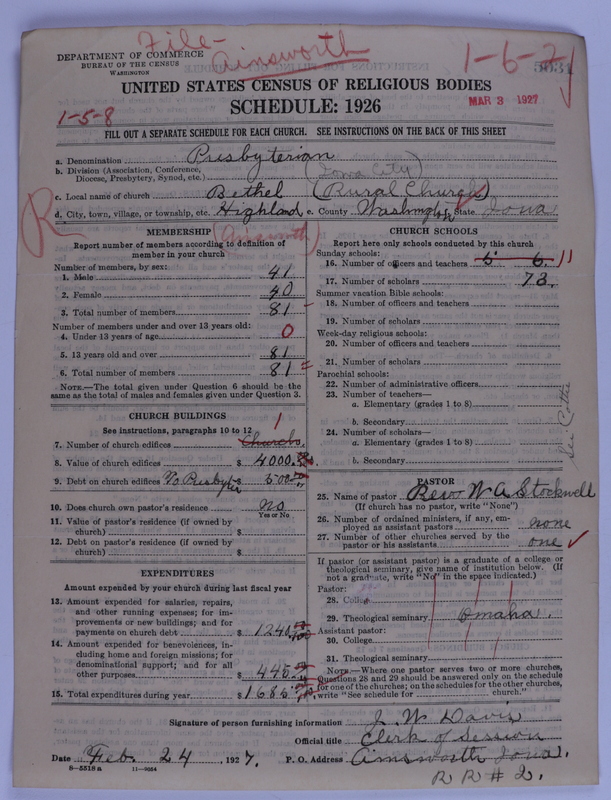 File- Ainsworth
1-6-2
DEPARTMENT OF COMMERCE
BUREAU OF THE CENSUS
WASHINGTON
5031
UNITED STATES CENSUS OF RELIGIOUS BODIES
MAR 3 1927
SCHEDULE: 1926
1-5-8
FILL OUT A SEPARATE SCHEDULE FOR EACH CHURCH. SEE INSTRUCTIONS ON THE BACK OF THIS SHEET
a. Denomination Presbyterian
b. Division (Association, Conference, Diocese, Presbytery, Synod, etc.) (Iowa City)
c. Local name of church Bethel (Rural Church)
d. City, town, village, or township, etc. Highland e. County Washington State Iowa
R
(Ainsworth)
MEMBERSHIP
Report number of members according to definition of
member in your church
Number of members, by sex:
1. Male 41
2. Female 40
3. Total number of members 81
Number of members under and over 13 years old:
4. Under 13 years of age 0
5. 13 years old and over 81
6. Total number of members 81
NOTE.—The total given under Question 6 should be the
same as the total of males and females given under Question 3.
CHURCH BUILDINGS
See instructions, paragraphs 10 to 12
7. Number of church edifices Church 1
8. Value of church edifices $ 4000.00
9. Debt on church edifices No Presbyter $ 500
10. Does church own pastor's residence no
Yes or No
11. Value of pastor's residence (if owned by
church) $
12. Debt on pastor's residence (if owned by
church) $
EXPENDITURES
Amount expended by your church during last fiscal year
13. Amount expended for salaries, repairs,
and other running expenses; for im-
provements or new buildings; and for
payments on church debt $ 1240
14. Amount expended for benevolences, in-
cluding home and foreign missions; for
denominational support; and for all
other purposes $ 445
15. Total expenditures during year $ 1685
CHURCH SCHOOLS
Report here only schools conducted by this church
Sunday schools:
16. Number of officers and teachers 5 6 11
17. Number of scholars 73.
Summer vacation Bible schools:
18. Number of officers and teachers
19. Number of scholars
Week-day religious schools:
20. Number of officers and teachers
21. Number of scholars
Parochial schools:
22. Number of administrative officers
23. Number of teachers—
a. Elementary (grades 1 to 8)
b. Secondary
24. Number of scholars—
a. Elementary (grades 1 to 8)
b. Secondary
PASTOR
25. Name of pastor Rev W A Stockwell
(If church has no pastor, write "None")
26. Number of ordained ministers, if any, em-
ployed as assistant pastors none
27. Number of other churches served by the
pastor or his assistants one
If pastor (or assistant pastor) is a graduate of a college or
theological seminary, give name of institution below. (If
not a graduate, write "No" in the space indicated.)
Pastor:
28. College
29. Theological seminary Omaha.
Assistant pastor:
30. College
31. Theological seminary
NOTE.—Where one pastor serves two or more churches,
Questions 28 and 29 should be answered only on the schedule
for one of the churches; on the schedules for the other churches,
write "See schedule for church."
Signature of person furnishing information J. W Davis
Official title Clerk of Session
Date Feb. 24, 1927. P. O. Address Ainsworth Iowa.
8-5518a 11-9054
R R # 2.